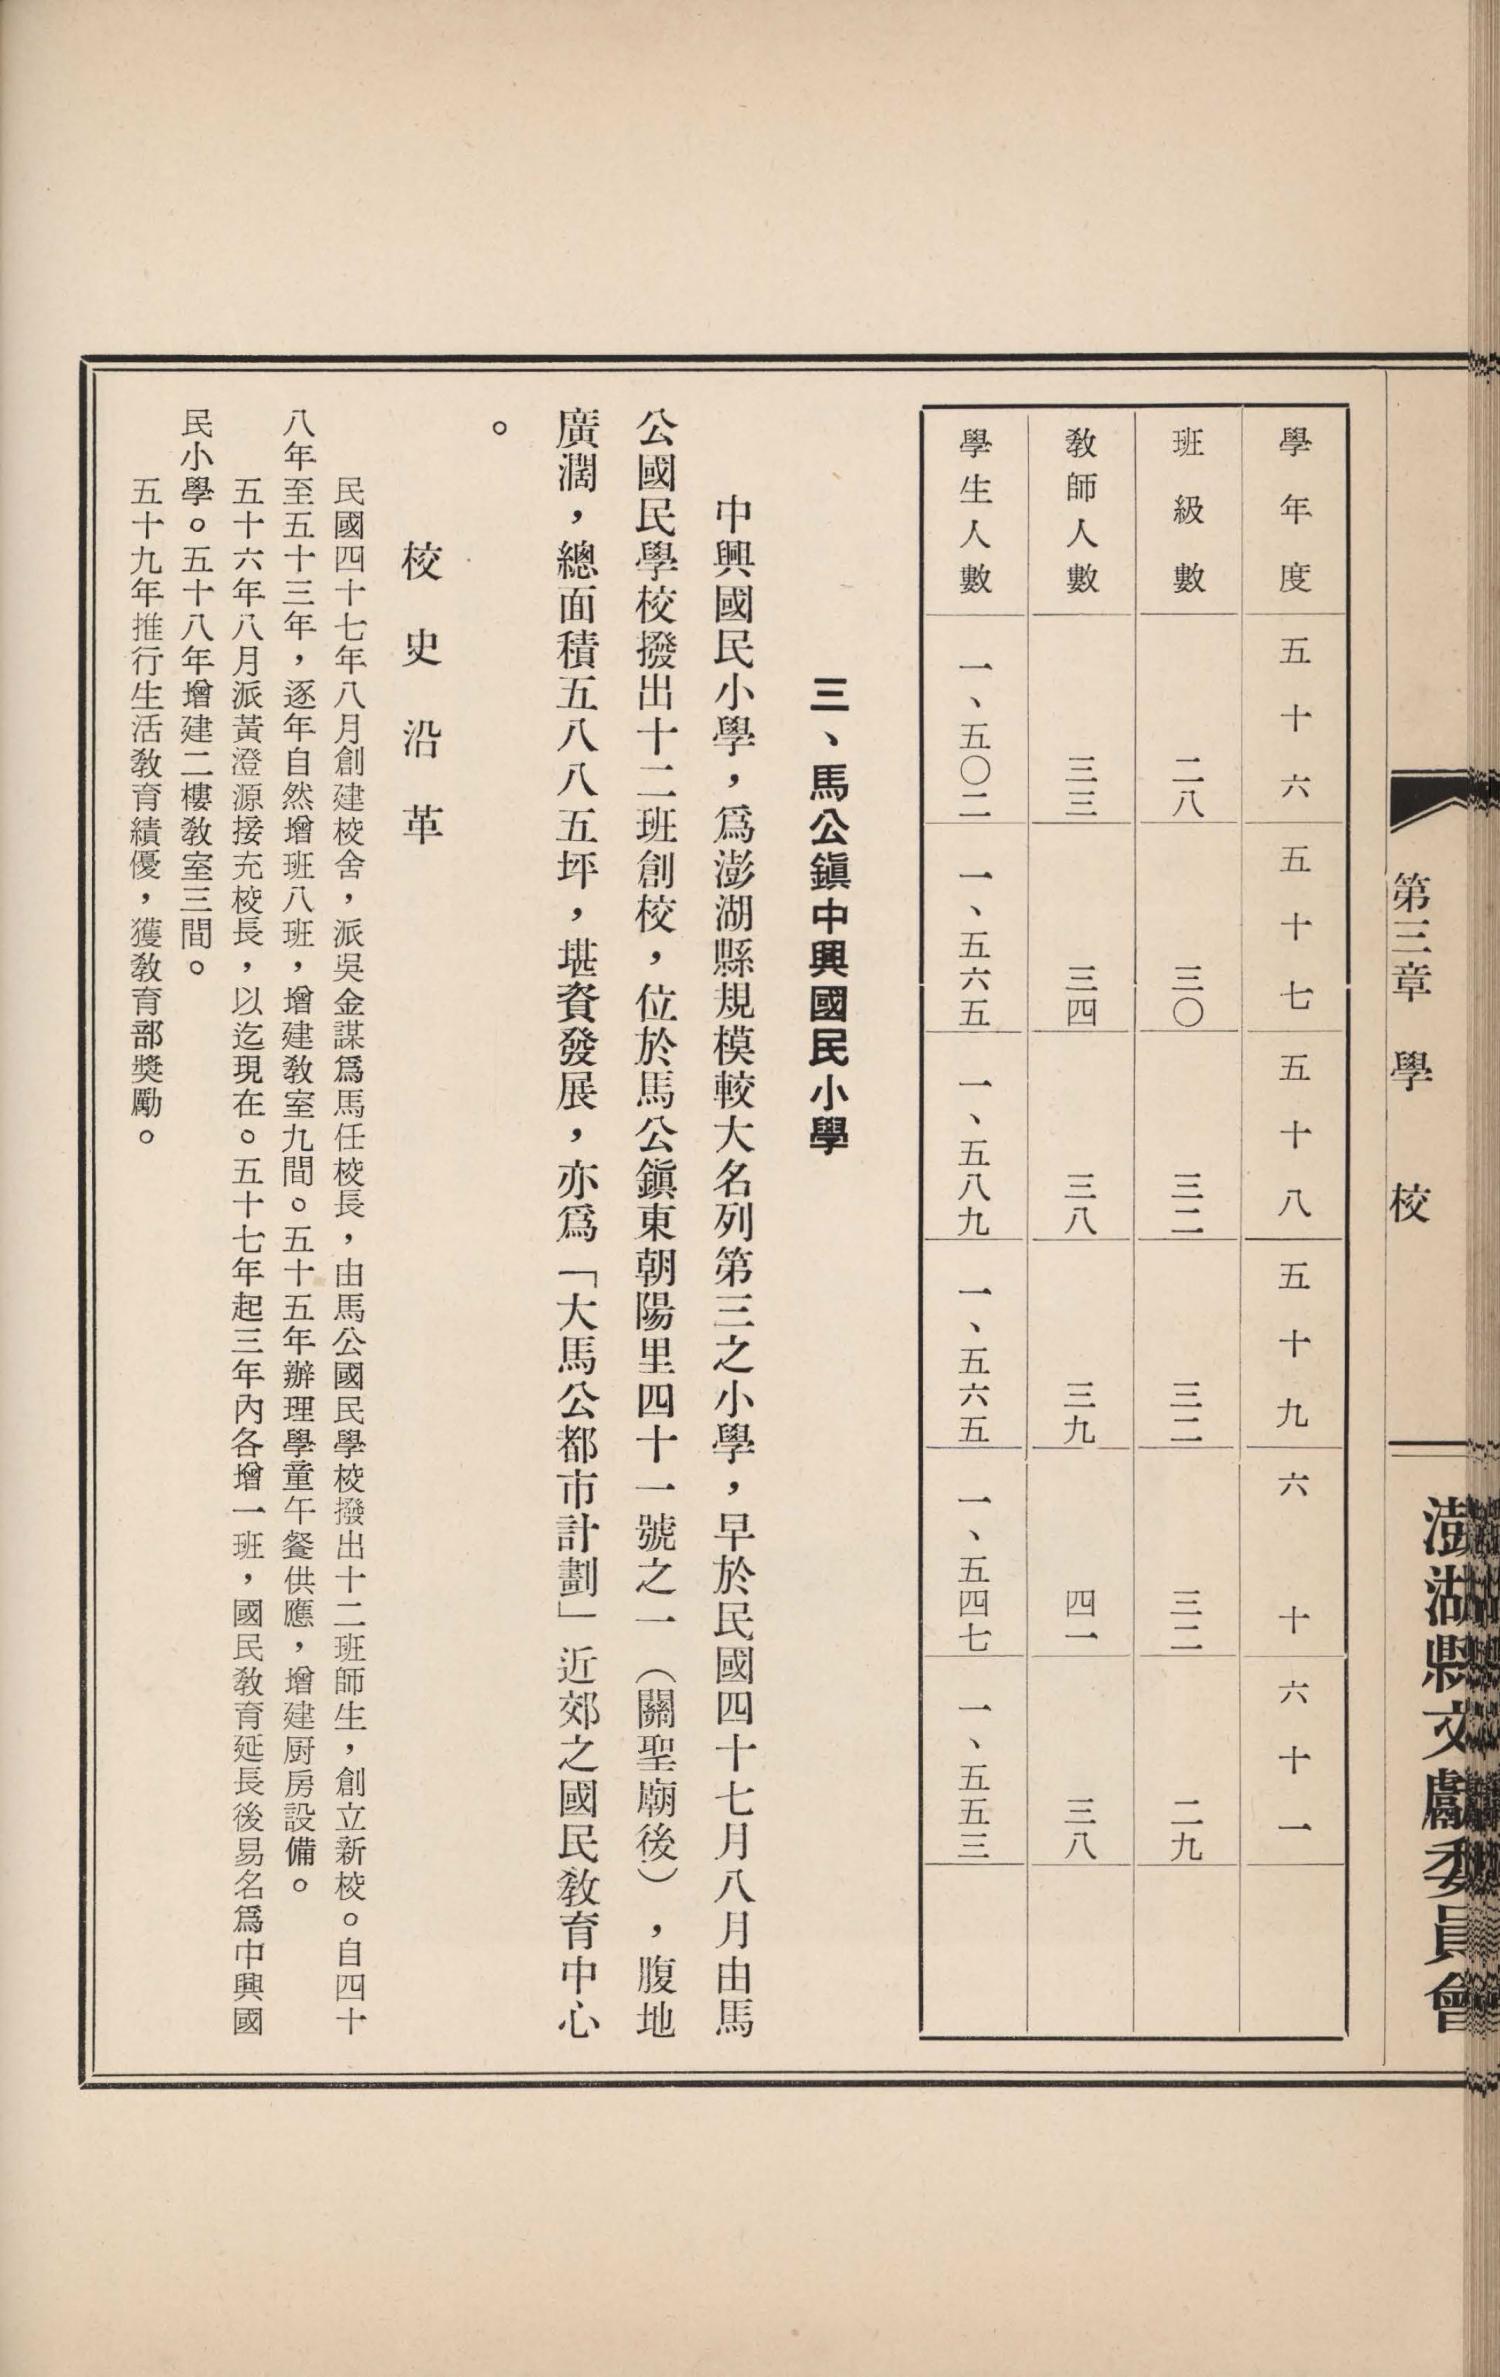 第三章　學　校
澎湖縣文獻委員會
學年度　五十六　五十七　五十八　五十九　六十　六十一
班級數　二八　三〇　三二　三二　三二　二九
教師人數　三三　三四　三八　三九　四一　三八
學生人數　一、五〇二　一、五六五　一、五八九　一、五六五　一、五四七　一、五五三
三、馬公鎭中興國民小學
中興國民小學，爲澎湖縣規模較大名列第三之小學，早於民國四十七月八月由馬
公國民學校撥出十二班創校，位於馬公鎭東朝陽里四十一號之一（關聖廟後），腹地
廣濶，總面積五八八五坪，堪資發展，亦爲「大馬公都市計劃」近郊之國民教育中心
。
校史沿革
民國四十七年八月創建校舍，派吳金謀爲馬任校長，由馬公國民學校撥出十二班師生，創立新校。自四十
八年至五十三年，逐年自然增班八班，增建教室九間。五十五年辦理學童午餐供應，增建厨房設備。
五十六年八月派黃澄源接充校長，以迄現在。五十七年起三年內各增一班，國民教育延長後易名爲中興國
民小學。五十八年增建二樓教室三間。
五十九年推行生活教育績優，獲教育部獎勵。